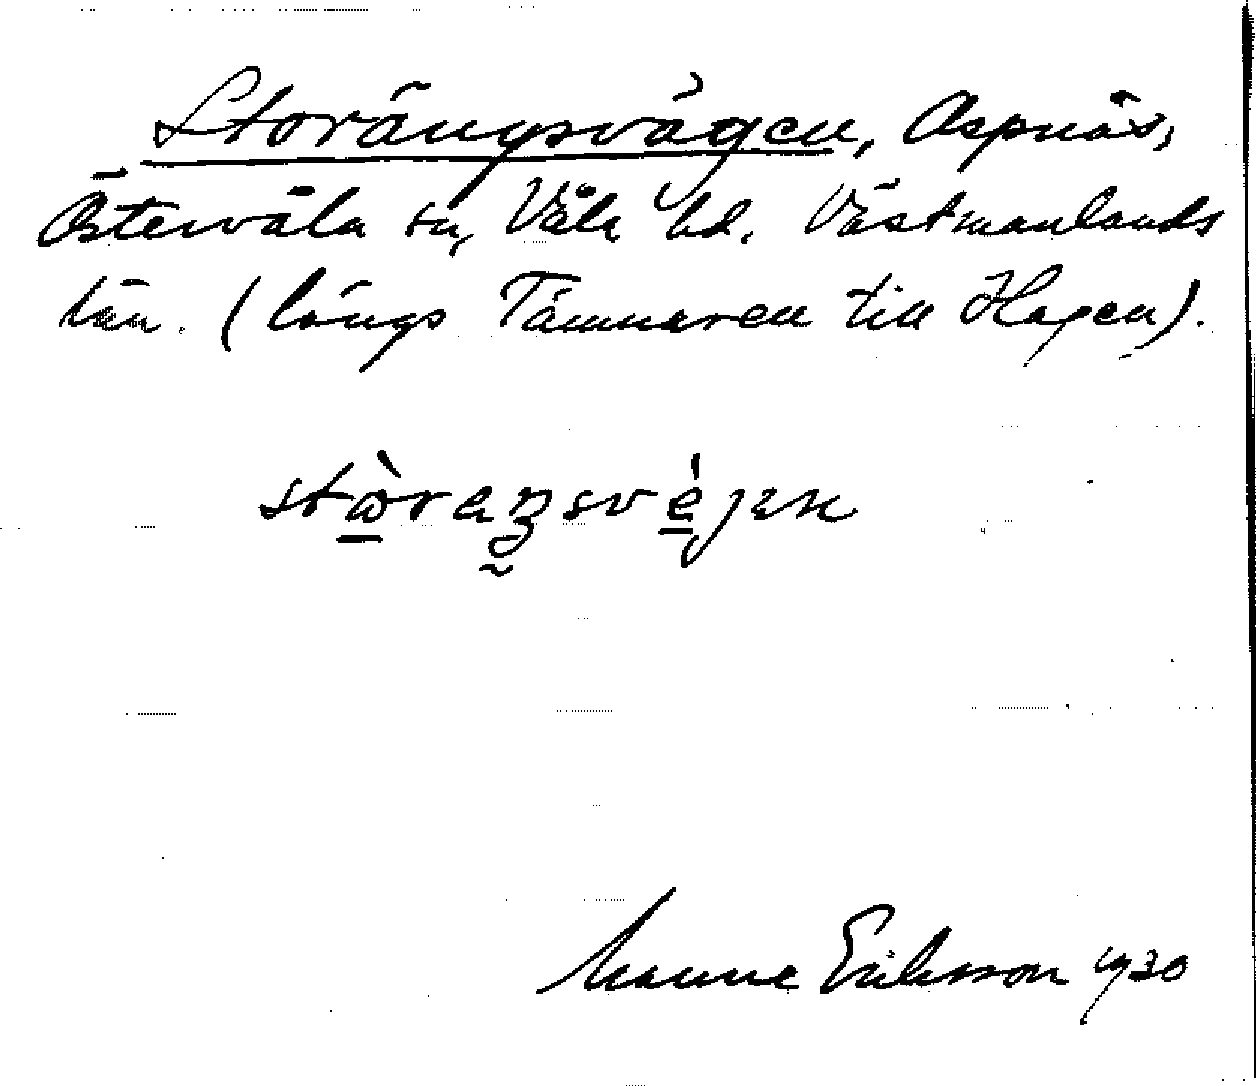 Storängsvägen, Aspnäs,
Östervåla sn, Våla hd. Västmanlands
län. (längs Tämnaren till Hagen).
stωraŋsvejen
Manne Eriksson 1930